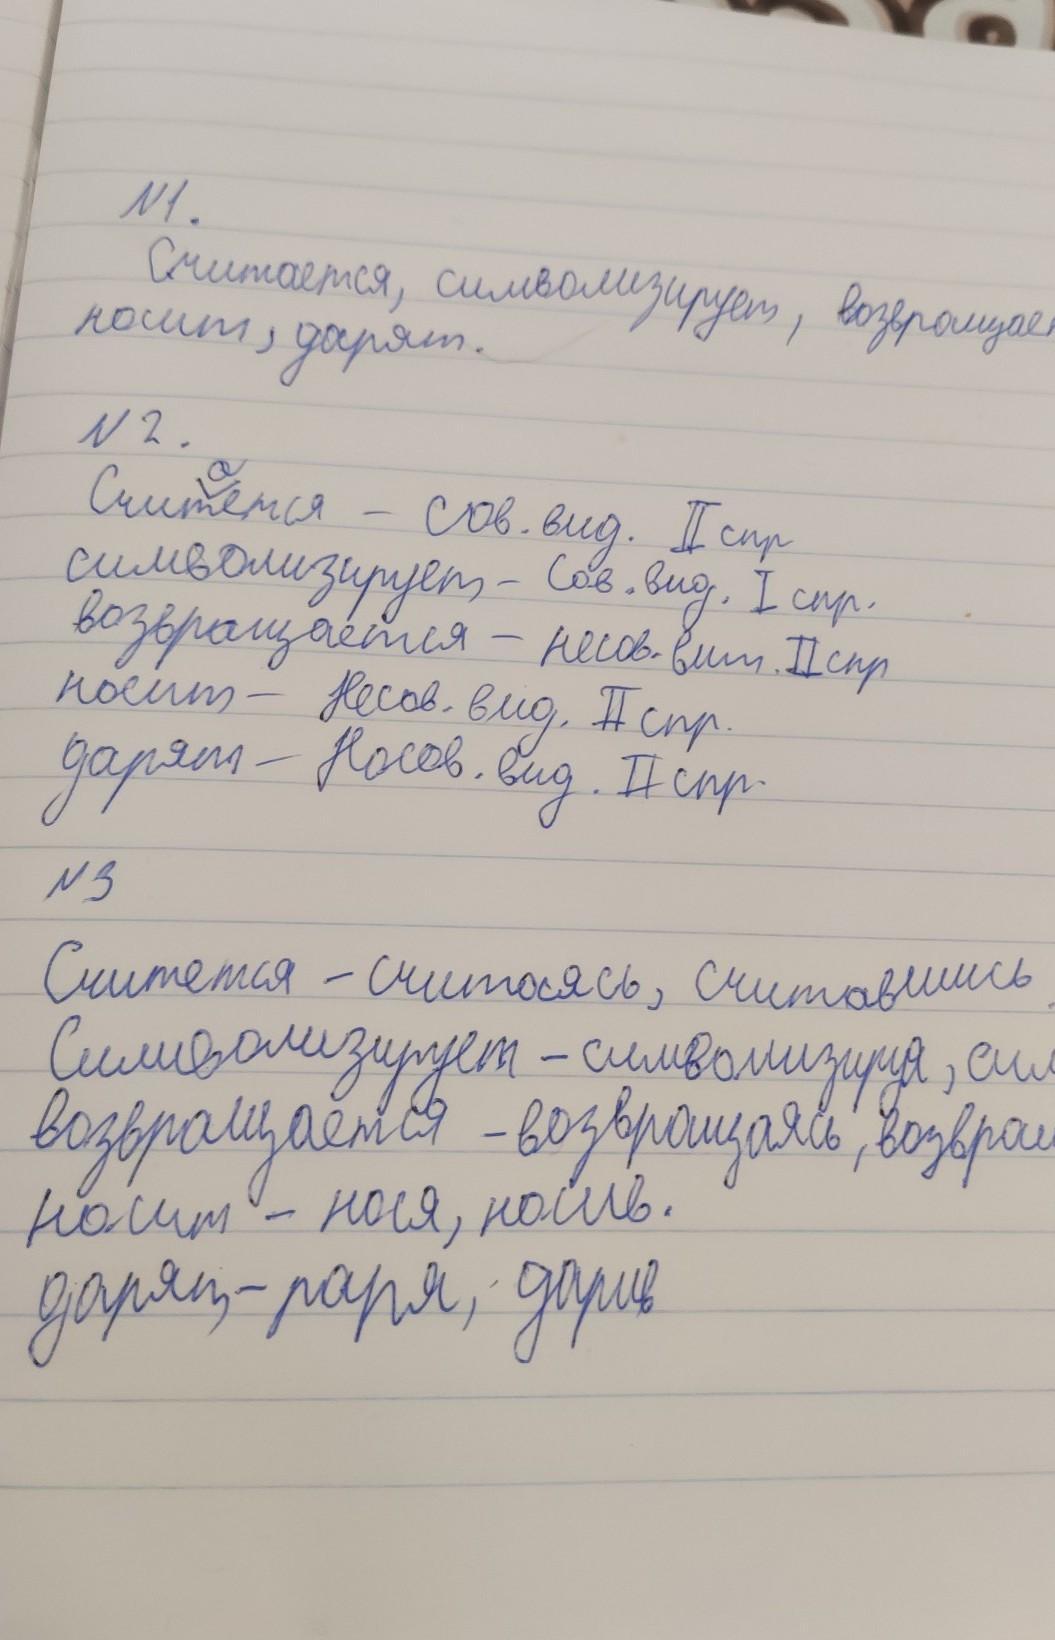 N1.
Считается, символизирует, возвращает
носит, дарят.
N2.
а
Считется – Сов. вид. II спр
символизирует – Сов. вид. I спр.
возвращается – несов. вит. II спр
носит – Несов. вид. II спр.
дарят – Носов. вид. II спр.
N3
Считется – считаясь, считавшись.
Символизирует – символизируя, сим
возвращается – возвращаясь, возвращ
носит – нося, носив.
дарят – даря, дарив